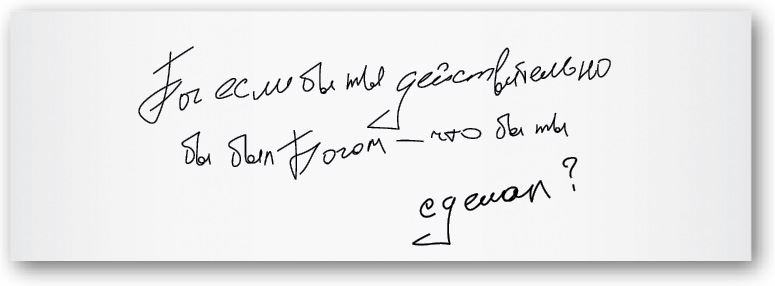 Бог если бы ты действительно
бы был Богом — что бы ты
сделал?